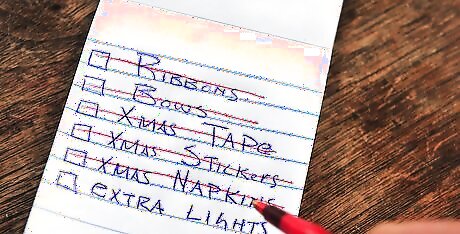 RIBBONS
BOWS
XMAS TAPE
XMAS STICKERS
XMAS NAPKINS
EXTRA LIGHTS